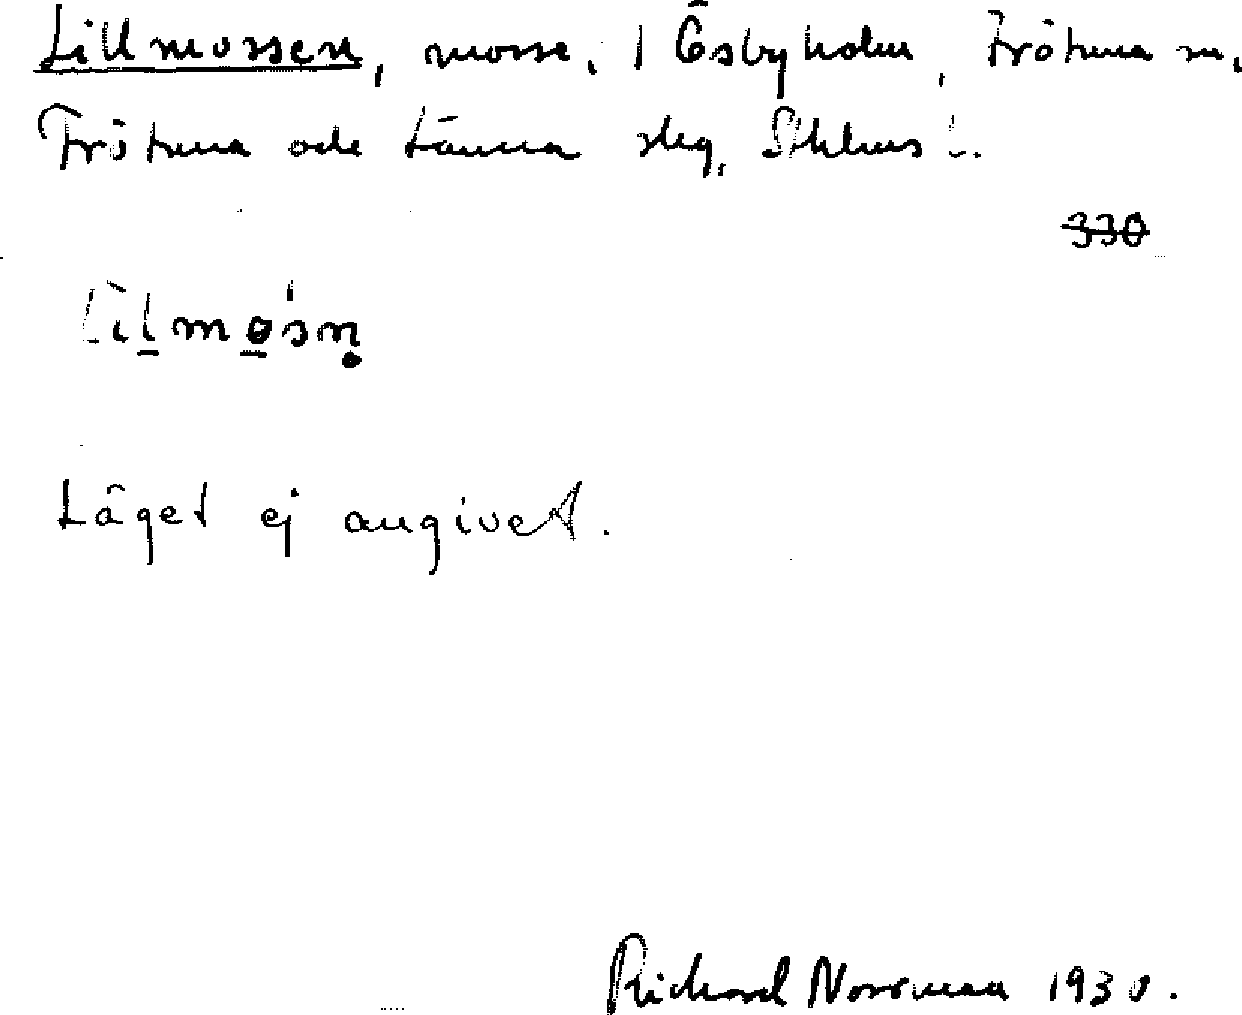 Lillmossen, mosse, 1 Ösbyholm, Frötuna sn,
Frötuna och Länna skg, Sthlms l.
330
Läget ej angivet.
Richard Norrman 1930.